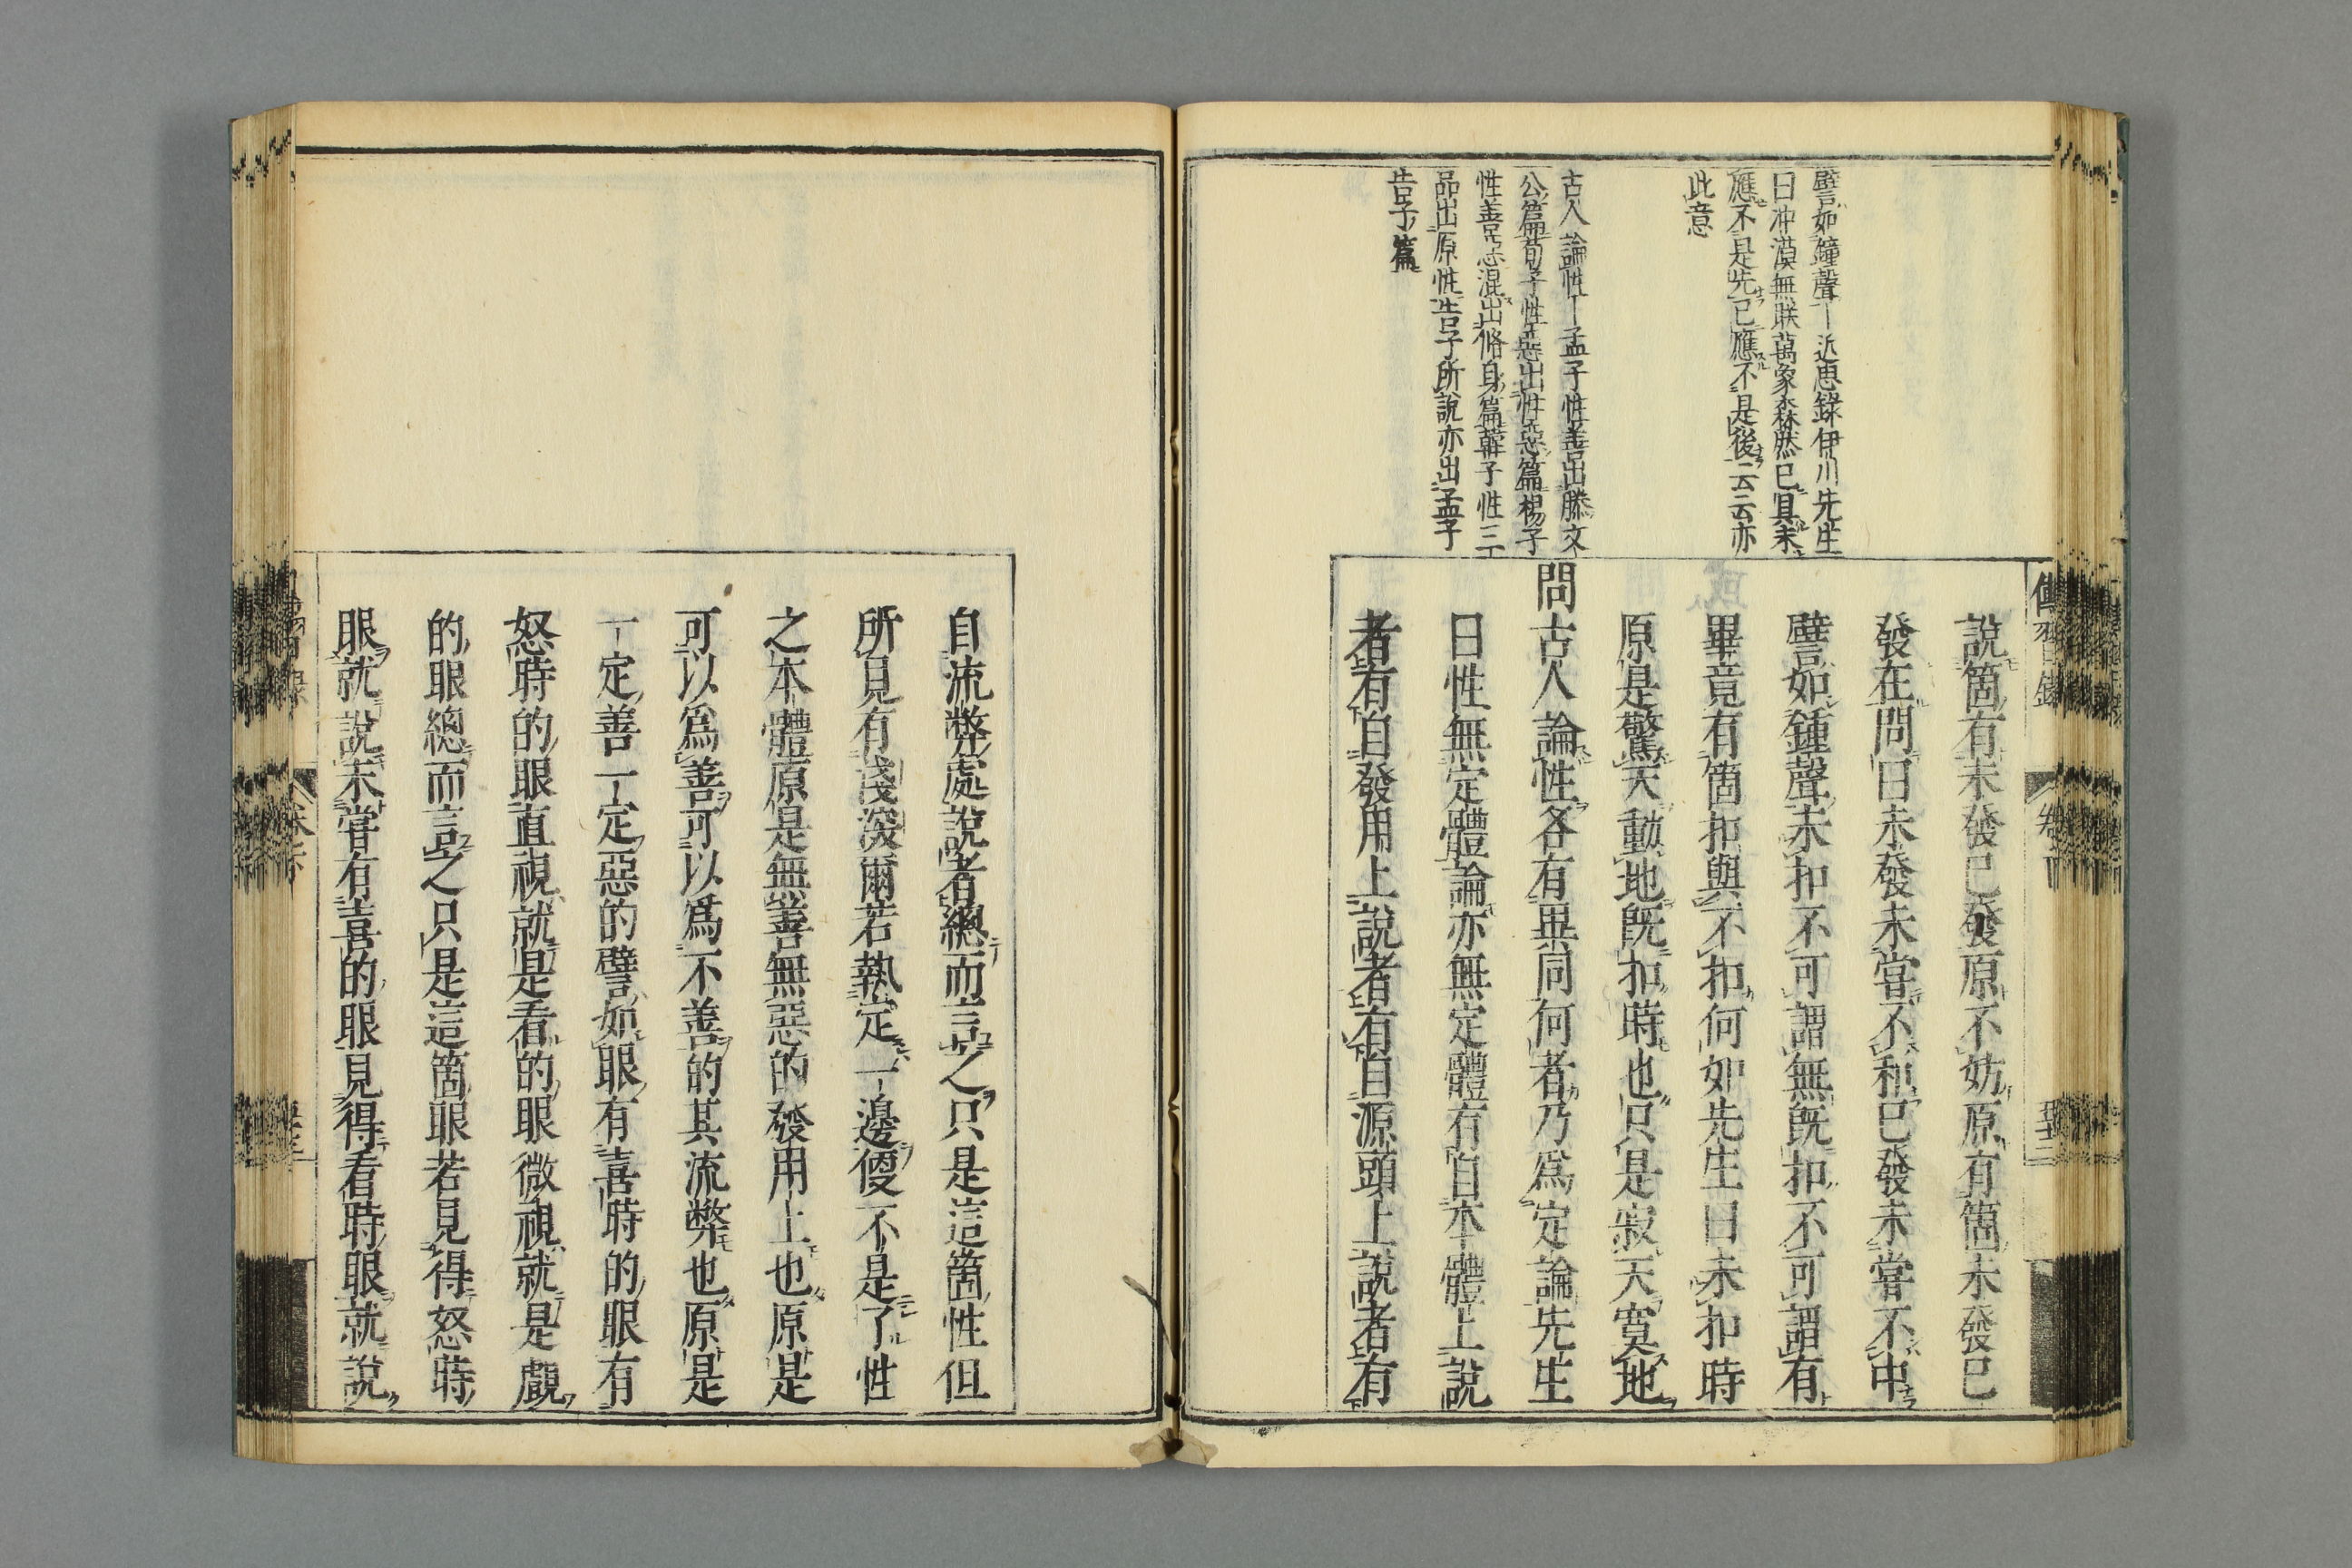 譬如鐘聲一近思錄伊川先生
曰冲漠無朕萬象森然已具未
應不是先已應不是後云云亦
此意
古人論性一孟子性善出滕文
公篇荀子性惡出性惡篇楊子
性善惡混出脩身篇韓子性三
品出原性告子所說亦出孟子
告子篇
傳習錄
卷四
說箇有未發已發原不妨原有箇未發已
發在問曰未發未嘗不和已發未嘗不中
譬如鍾聲未扣不可謂無既扣不可謂有
畢竟有箇扣與不扣何如先生曰未扣時
原是驚天動地既扣時也只是寂天寞地
問古人論性各有異同何者乃爲定論先生
曰性無定體論亦無定體有自本體上說
者有自發用上說者有自源頭上說者有
自流弊處說者總而言之只是這箇性但
所見有淺深爾若執定一邊便不是了性
之本體原是無善無惡的發用上也原是
可以爲善可以爲不善的其流弊也原是
一定善一定惡的譬如眼有喜時的眼有
怒時的眼直視就是看的眼微視就是覷
的眼總而言之只是這箇眼若見得怒時
眼就說未嘗有喜的眼見得看時眼就說